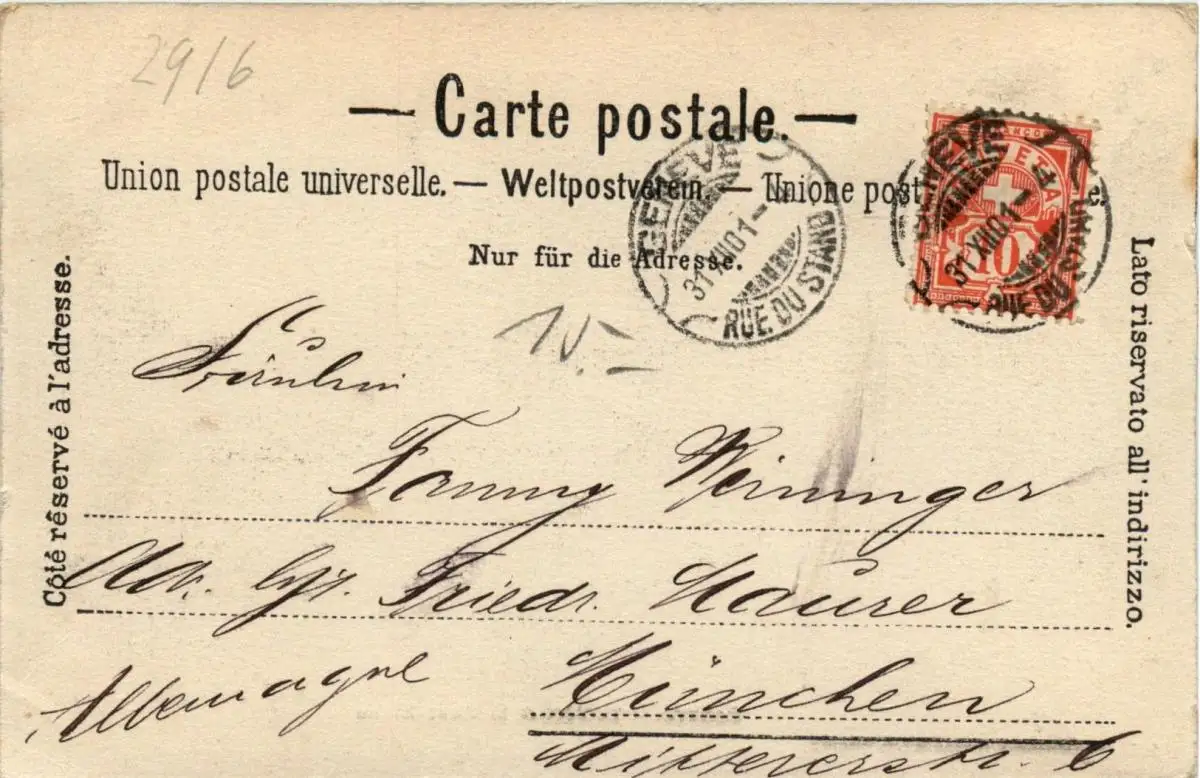 29/6
— Carte postale. —
Union postale universelle. — Weltpostverein. — Unione post e.
Nur für die Adresse.
Côté réservé à l'adresse.
Lato riservato all' indirizzo.
GENEVE
31 XII 01 –
RUE DU STAND
GENEVE
31 XII 01 –
RUE DU STAND
FRANCO
HELVETIA
10
Fräulein
Fanny Weininger
Adr. Friedr. Hauser
München
Allemagne
Mittererstr. 6